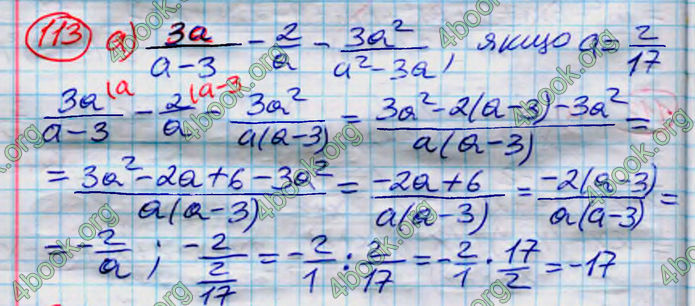 113 а) 3a/(a-3) - 2/a - 3a²/(a²-3a), якщо a = 2/17
3a/(a-3) (a - 2/a (a-3 - 3a²/(a(a-3)) = (3a²-2(a-3)-3a²)/(a(a-3)) =
= (3a²-2a+6-3a²)/(a(a-3)) = (-2a+6)/(a(a-3)) = -2(a-3)/(a(a-3)) =
= -2/a ; -2/(2/17) = -2/1 : 2/17 = -2/1 · 17/2 = -17
4book.org